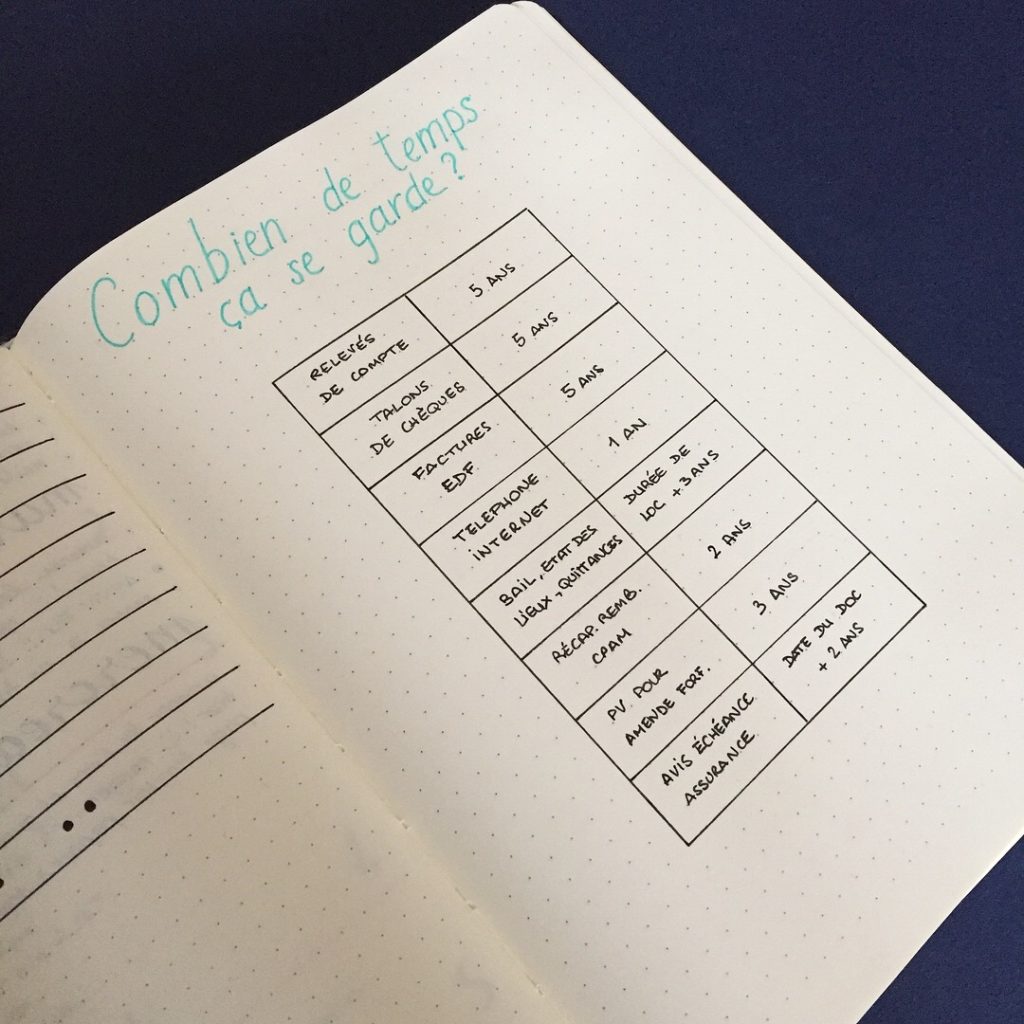 Combien de temps
ça se garde?
RELEVÉS
DE COMPTE
5 ANS
TALONS
DE CHÈQUES
5 ANS
FACTURES
EDF
5 ANS
TELEPHONE
INTERNET
1 AN
BAIL, ETAT DES
LIEUX, QUITTANCES
DURÉE DE
LOC +3 ANS
RÉCAP. REMB.
CPAM
2 ANS
PV POUR
AMENDE FORF.
3 ANS
AVIS ÉCHÉANCE
ASSURANCE
DATE DU DOC
+ 2 ANS